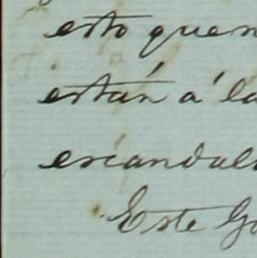 esto quen
están á la
escandals
Este Go